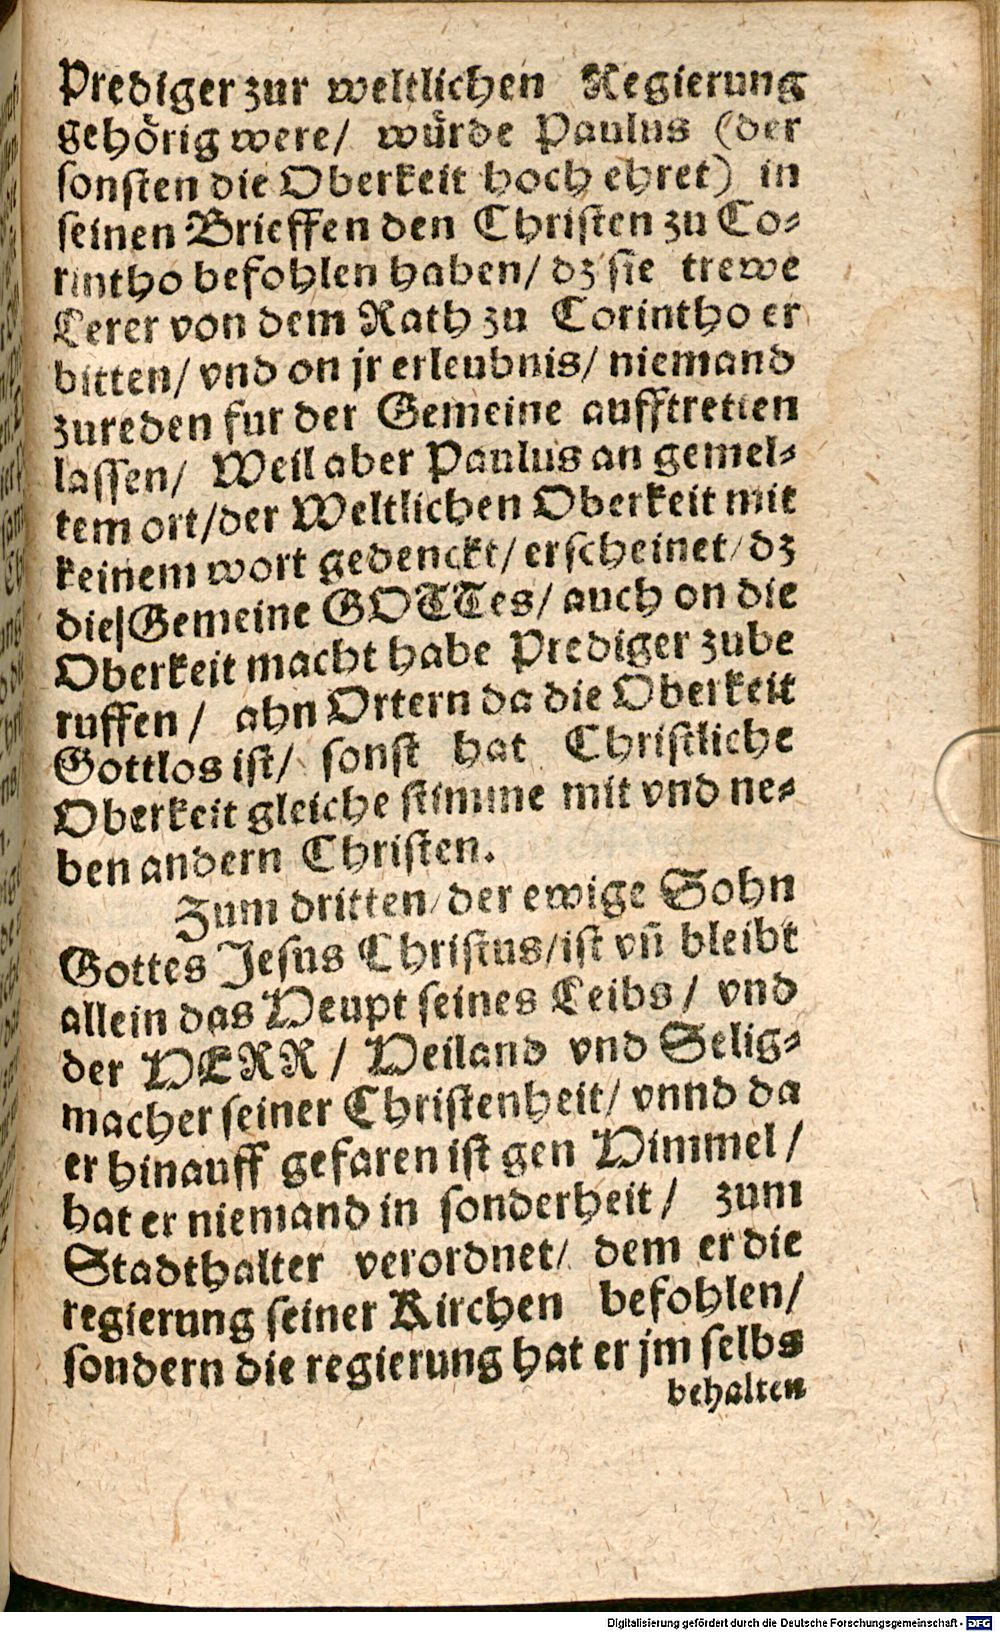 Prediger zur weltlichen Regierung
gehörig were/ würde Paulus (der
sonsten die Oberkeit hoch ehret) in
seinen Brieffen den Christen zu Co⸗
rintho befohlen haben/ dz sie trewe
Lerer von dem Rath zu Corintho er
bitten/ vnd on jr erleubnis/ niemand
zureden fur der Gemeine aufftretten
lassen/ Weil aber Paulus an gemel⸗
tem ort/der Weltlichen Oberkeit mit
keinem wort gedenckt/ erscheinet/ dz
die Gemeine GOTTes/ auch on die
Oberkeit macht habe Prediger zube
ruffen/ ahn Ortern da die Oberkeit
Gottlos ist/ sonst hat Christliche
Oberkeit gleiche stimme mit vnd ne⸗
ben andern Christen.
Zum dritten/ der ewige Sohn
Gottes Jesus Christus/ist vñ bleibt
allein das Heupt seines Leibs/ vnd
der HERR/ Heiland vnd Selig⸗
macher seiner Christenheit/ vnnd da
er hinauff gefaren ist gen Himmel/
hat er niemand in sonderheit/ zum
Stadthalter verordnet/ dem er die
regierung seiner Kirchen befohlen/
sondern die regierung hat er jm selbs
behalten
Digitalisierung gefördert durch die Deutsche Forschungsgemeinschaft - DFG